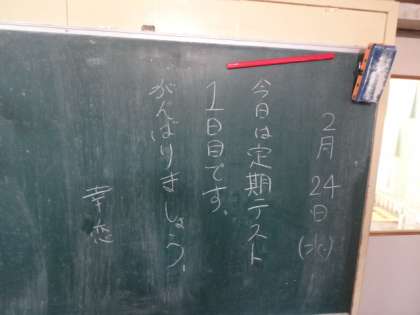 2月24日(水)
今日は定期テスト
1日目です。
がんばりましょう。
幸恋